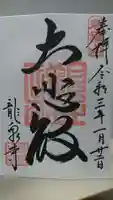 奉拝 令和三年一月廿三日
大悲殿
龍泉寺